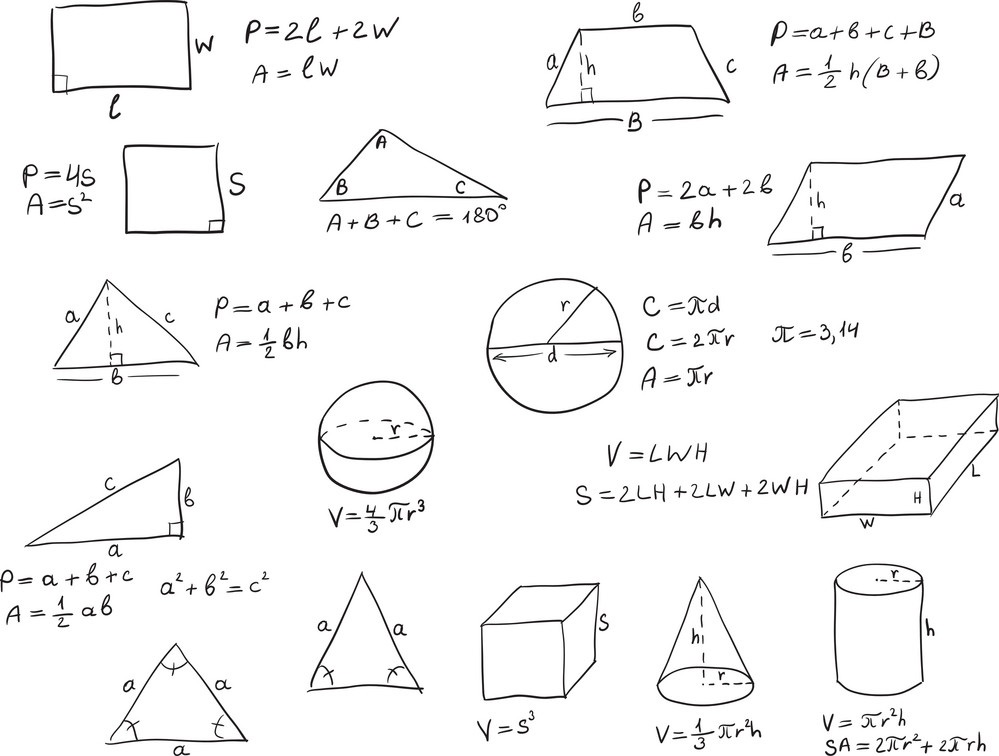 W
P=2l+2W
A=lW
l
b
a
h
c
B
P=a+b+c+B
A=1/2 h(B+b)
P=4s
A=s²
S
A
B
C
A+B+C=180°
P=2a+2b
A=bh
h
a
b
a
h
c
b
P=a+b+c
A=1/2 bh
r
d
C=πd
C=2πr
A=πr
π=3,14
r
V=4/3 πr³
V=LWH
S=2LH+2LW+2WH
H
L
W
c
b
a
P=a+b+c
A=1/2 ab
a²+b²=c²
a
a
a
a
a
S
V=S³
h
r
V=1/3 πr²h
r
h
V=πr²h
SA=2πr²+2πrh